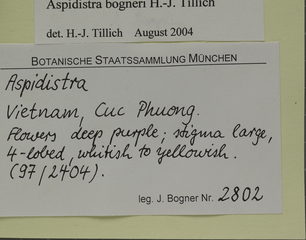 Aspidistra bogneri H.-J. Tillich
det. H.-J. Tillich August 2004
BOTANISCHE STAATSSAMMLUNG MÜNCHEN
Aspidistra
Vietnam, Cuc Phuong.
Flowers deep purple; stigma large,
4-lobed, whitish to yellowish.
(97/2404).
leg. J. Bogner Nr. 2802